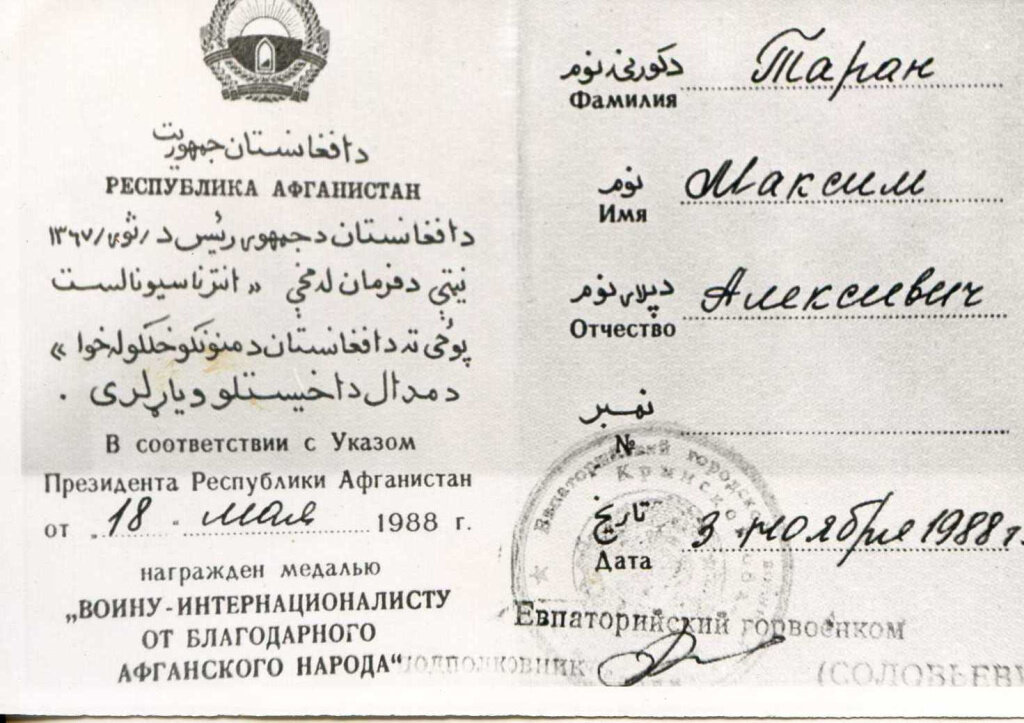 دافغانستان جمهوریت
РЕСПУБЛИКА АФГАНИСТАН
دافغانستان د جمهوری رئیس د /ثور/ ۱۳۶۷
نیټې د فرمان له مخې « انترناسیونالست
پوځی ته د افغانستان د منونکو خلکو له خوا »
د مدال د اخیستلو ویاړ لری .
В соответствии с Указом
Президента Республики Афганистан
от „ 18 " мая 1988 г.
награжден медалью
„ВОИНУ-ИНТЕРНАЦИОНАЛИСТУ
ОТ БЛАГОДАРНОГО
АФГАНСКОГО НАРОДА“
دکورنی نوم
Фамилия Таран
نوم
Имя Максим
دپلار نوم
Отчество Алексиевич
نمبر
№
تاریخ
Дата 3 ноября 1988 г.
Евпаторийский городско
Крымской
Евпаторийский горвоенком
подполковник (СОЛОВЬЕВ